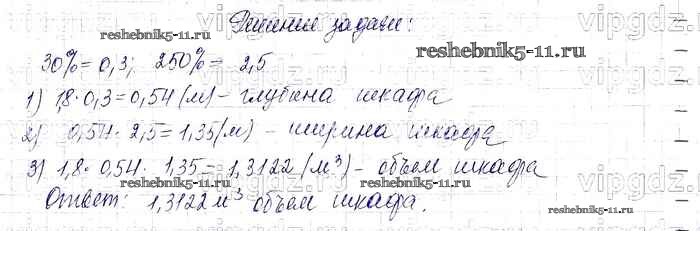 Решение задачи:
reshebnik5-11.ru
reshebnik5-11.ru
30% = 0,3; 250% = 2,5
1) 1,8 · 0,3 = 0,54 (м) – глубина шкафа
2) 0,54 · 2,5 = 1,35 (м) – ширина шкафа
3) 1,8 · 0,54 · 1,35 = 1,3122 (м³) – объем шкафа
reshebnik5-11.ru
reshebnik5-11.ru
vipgdz.
Ответ: 1,3122 м³ объем шкафа.
reshebnik5-11.ru